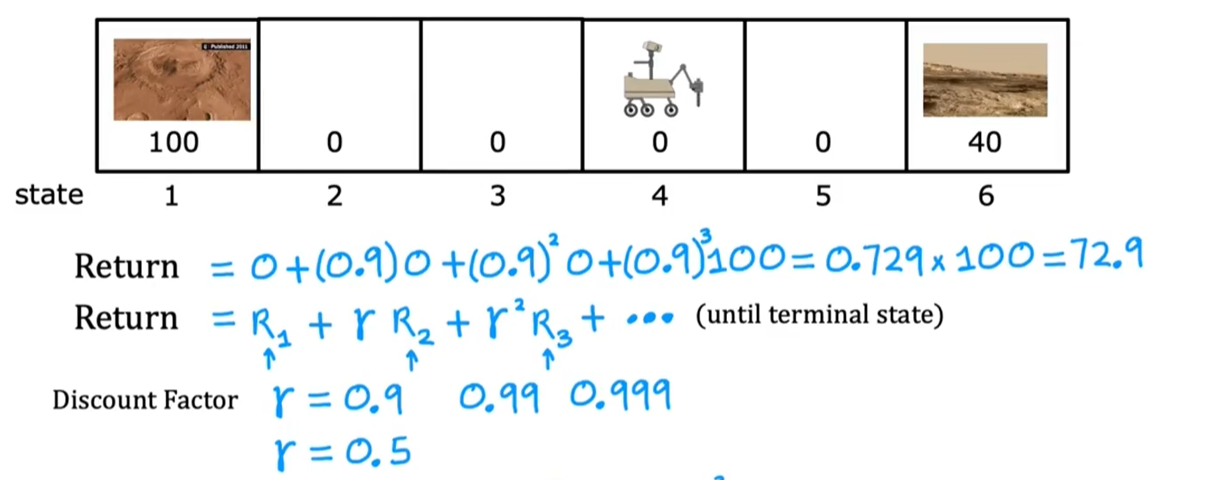 © Published 2011
100 0 0 0 0 40
state 1 2 3 4 5 6
Return = 0 + (0.9) 0 + (0.9)² 0 + (0.9)³ 100 = 0.729 × 100 = 72.9
Return = R₁ + γ R₂ + γ² R₃ + ••• (until terminal state)
↑ ↑ ↑
Discount Factor γ = 0.9 0.99 0.999
γ = 0.5